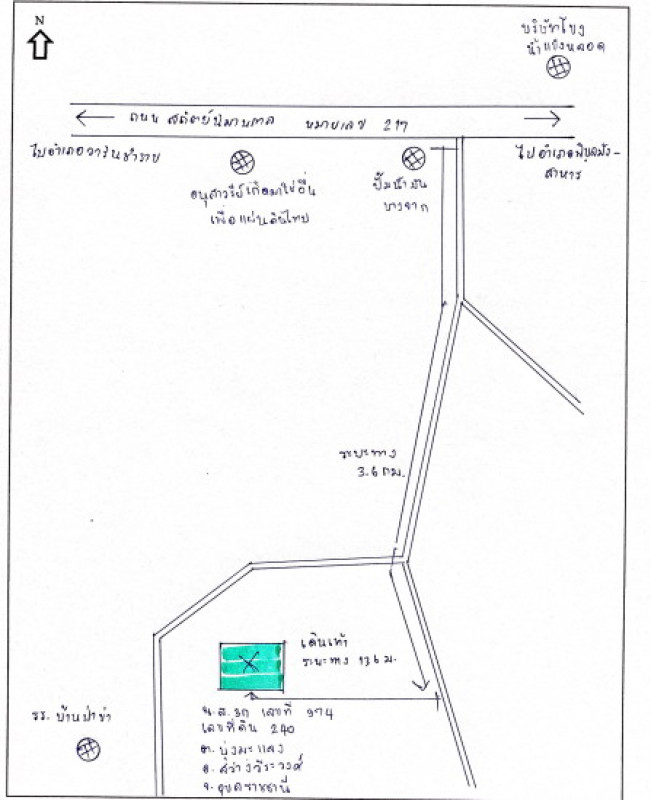 N
บริษัทโขง
น้ำแข็งหลอด
ถนน สถิตย์นิมานกาล หมายเลข 217
ไปอำเภอวารินชำราบ
ไปอำเภอพิบูลมัง-
สาหาร
อนุสาวรีย์เกิดมาใช้อื่น
เพื่อแผ่นดินไทย
ปั๊มน้ำมัน
บางจาก
ระยะทาง
3.6 กม.
เดินเท้า
ระยะทาง 136 ม.
น.ส.3ก เลขที่ 974
เลขที่ดิน 240
ต. บุ่งมะแลง
อ. สว่างวีระวงศ์
จ. อุบลราชธานี
รร. บ้านป่าข่า